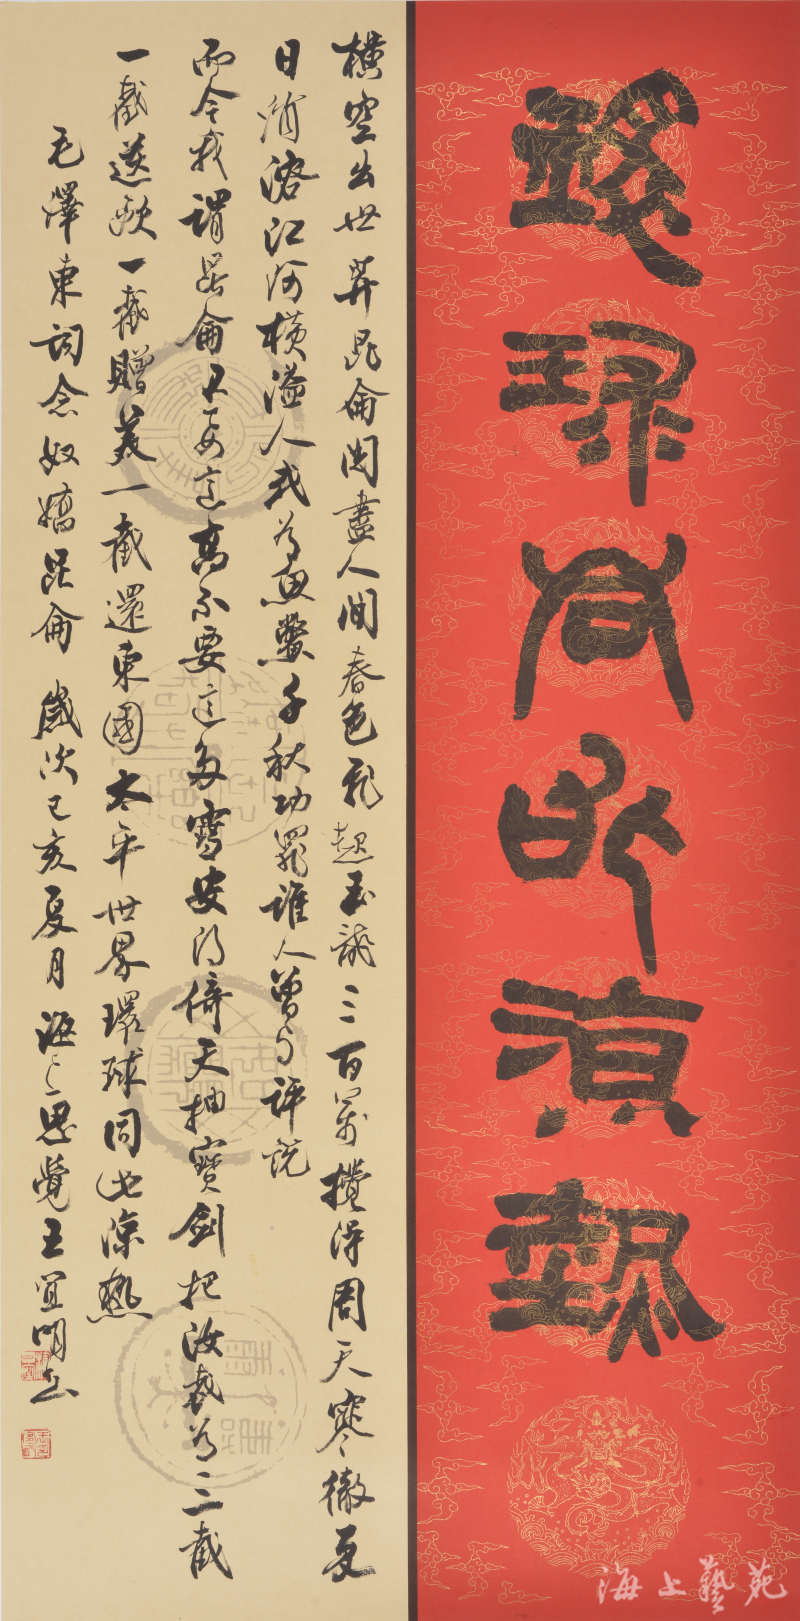 環球同此涼熱
橫空出世莽昆侖閱盡人間春色飛起玉龍三百萬攪得周天寒徹夏
日消溶江河橫溢人或為魚鱉千秋功罪誰人曾与評說
而今我謂昆侖不要這高不要這多雪安得倚天抽寶劍把汝裁為三截
一截遺歐一截贈美一截還東國太平世界環球同此涼熱
毛澤東詞念奴嬌昆侖 歲次己亥夏月海上思覺王宜明書
海上藝苑